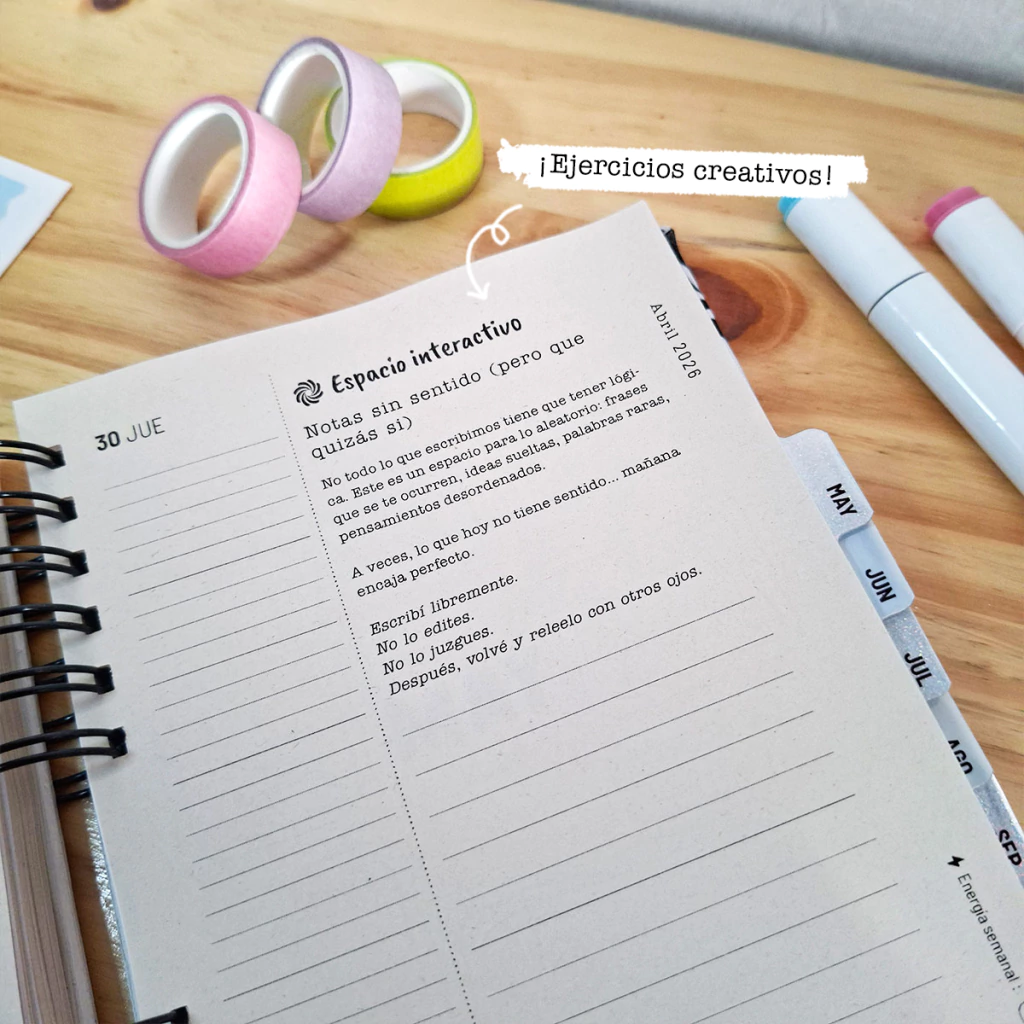 ¡Ejercicios creativos!
Abril 2026
30 JUE
Espacio interactivo
Notas sin sentido (pero que
quizás sí)
No todo lo que escribimos tiene que tener lógi-
ca. Este es un espacio para lo aleatorio: frases
que se te ocurren, ideas sueltas, palabras raras,
pensamientos desordenados.
A veces, lo que hoy no tiene sentido... mañana
encaja perfecto.
Escribí libremente.
No lo edites.
No lo juzgues.
Después, volvé y releelo con otros ojos.
MAY
JUN
JUL
AGO
SEP
Energía semanal :